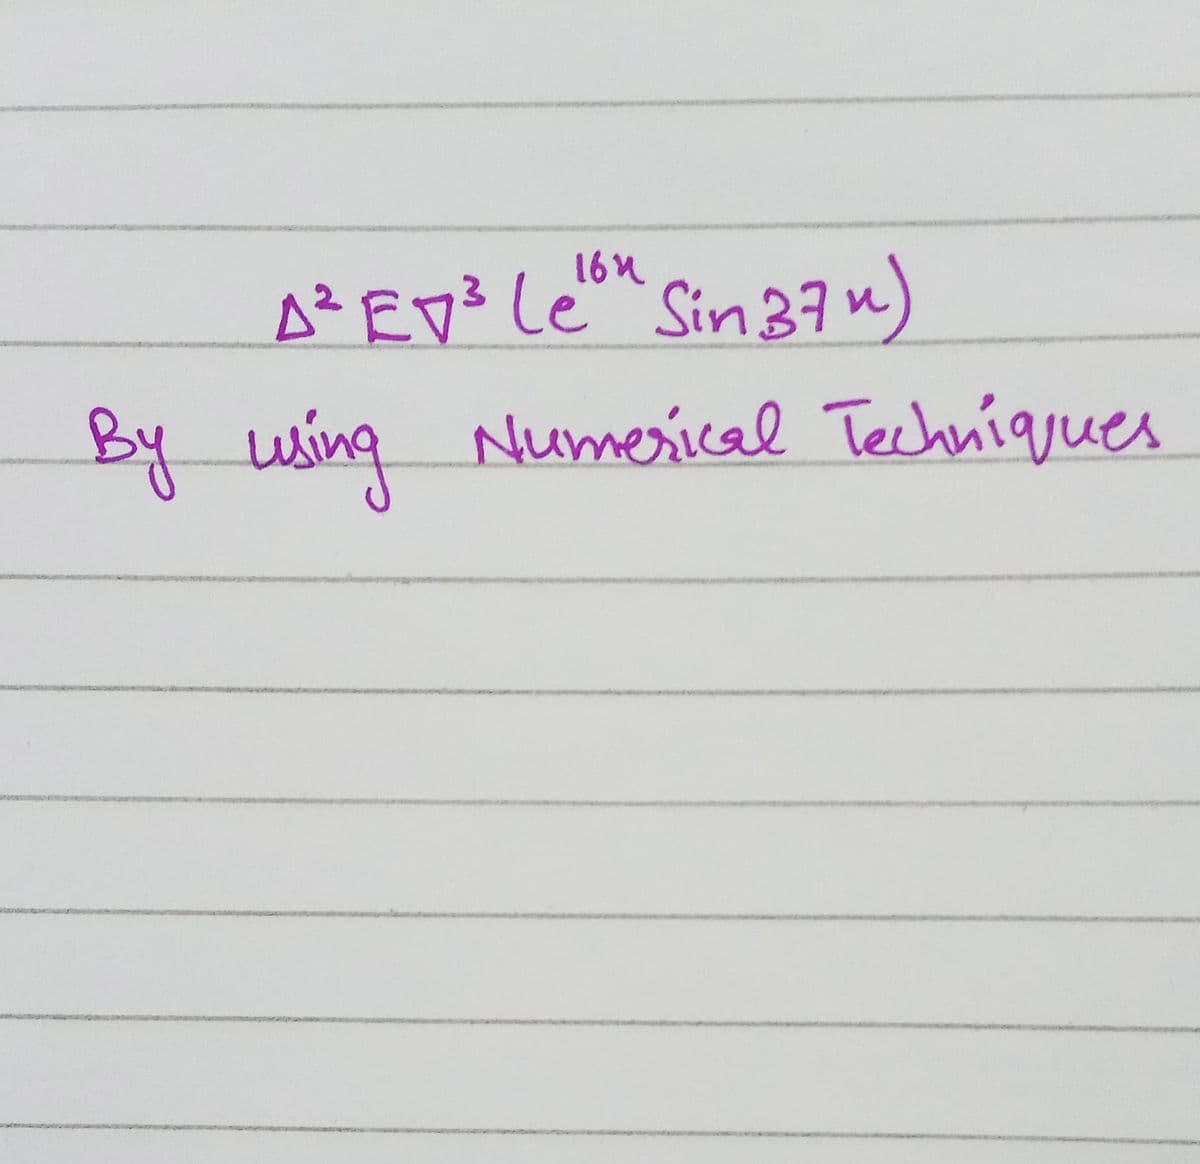 Δ² E ∇³ (e¹⁶ˣ Sin 37x)
By using Numerical Techniques